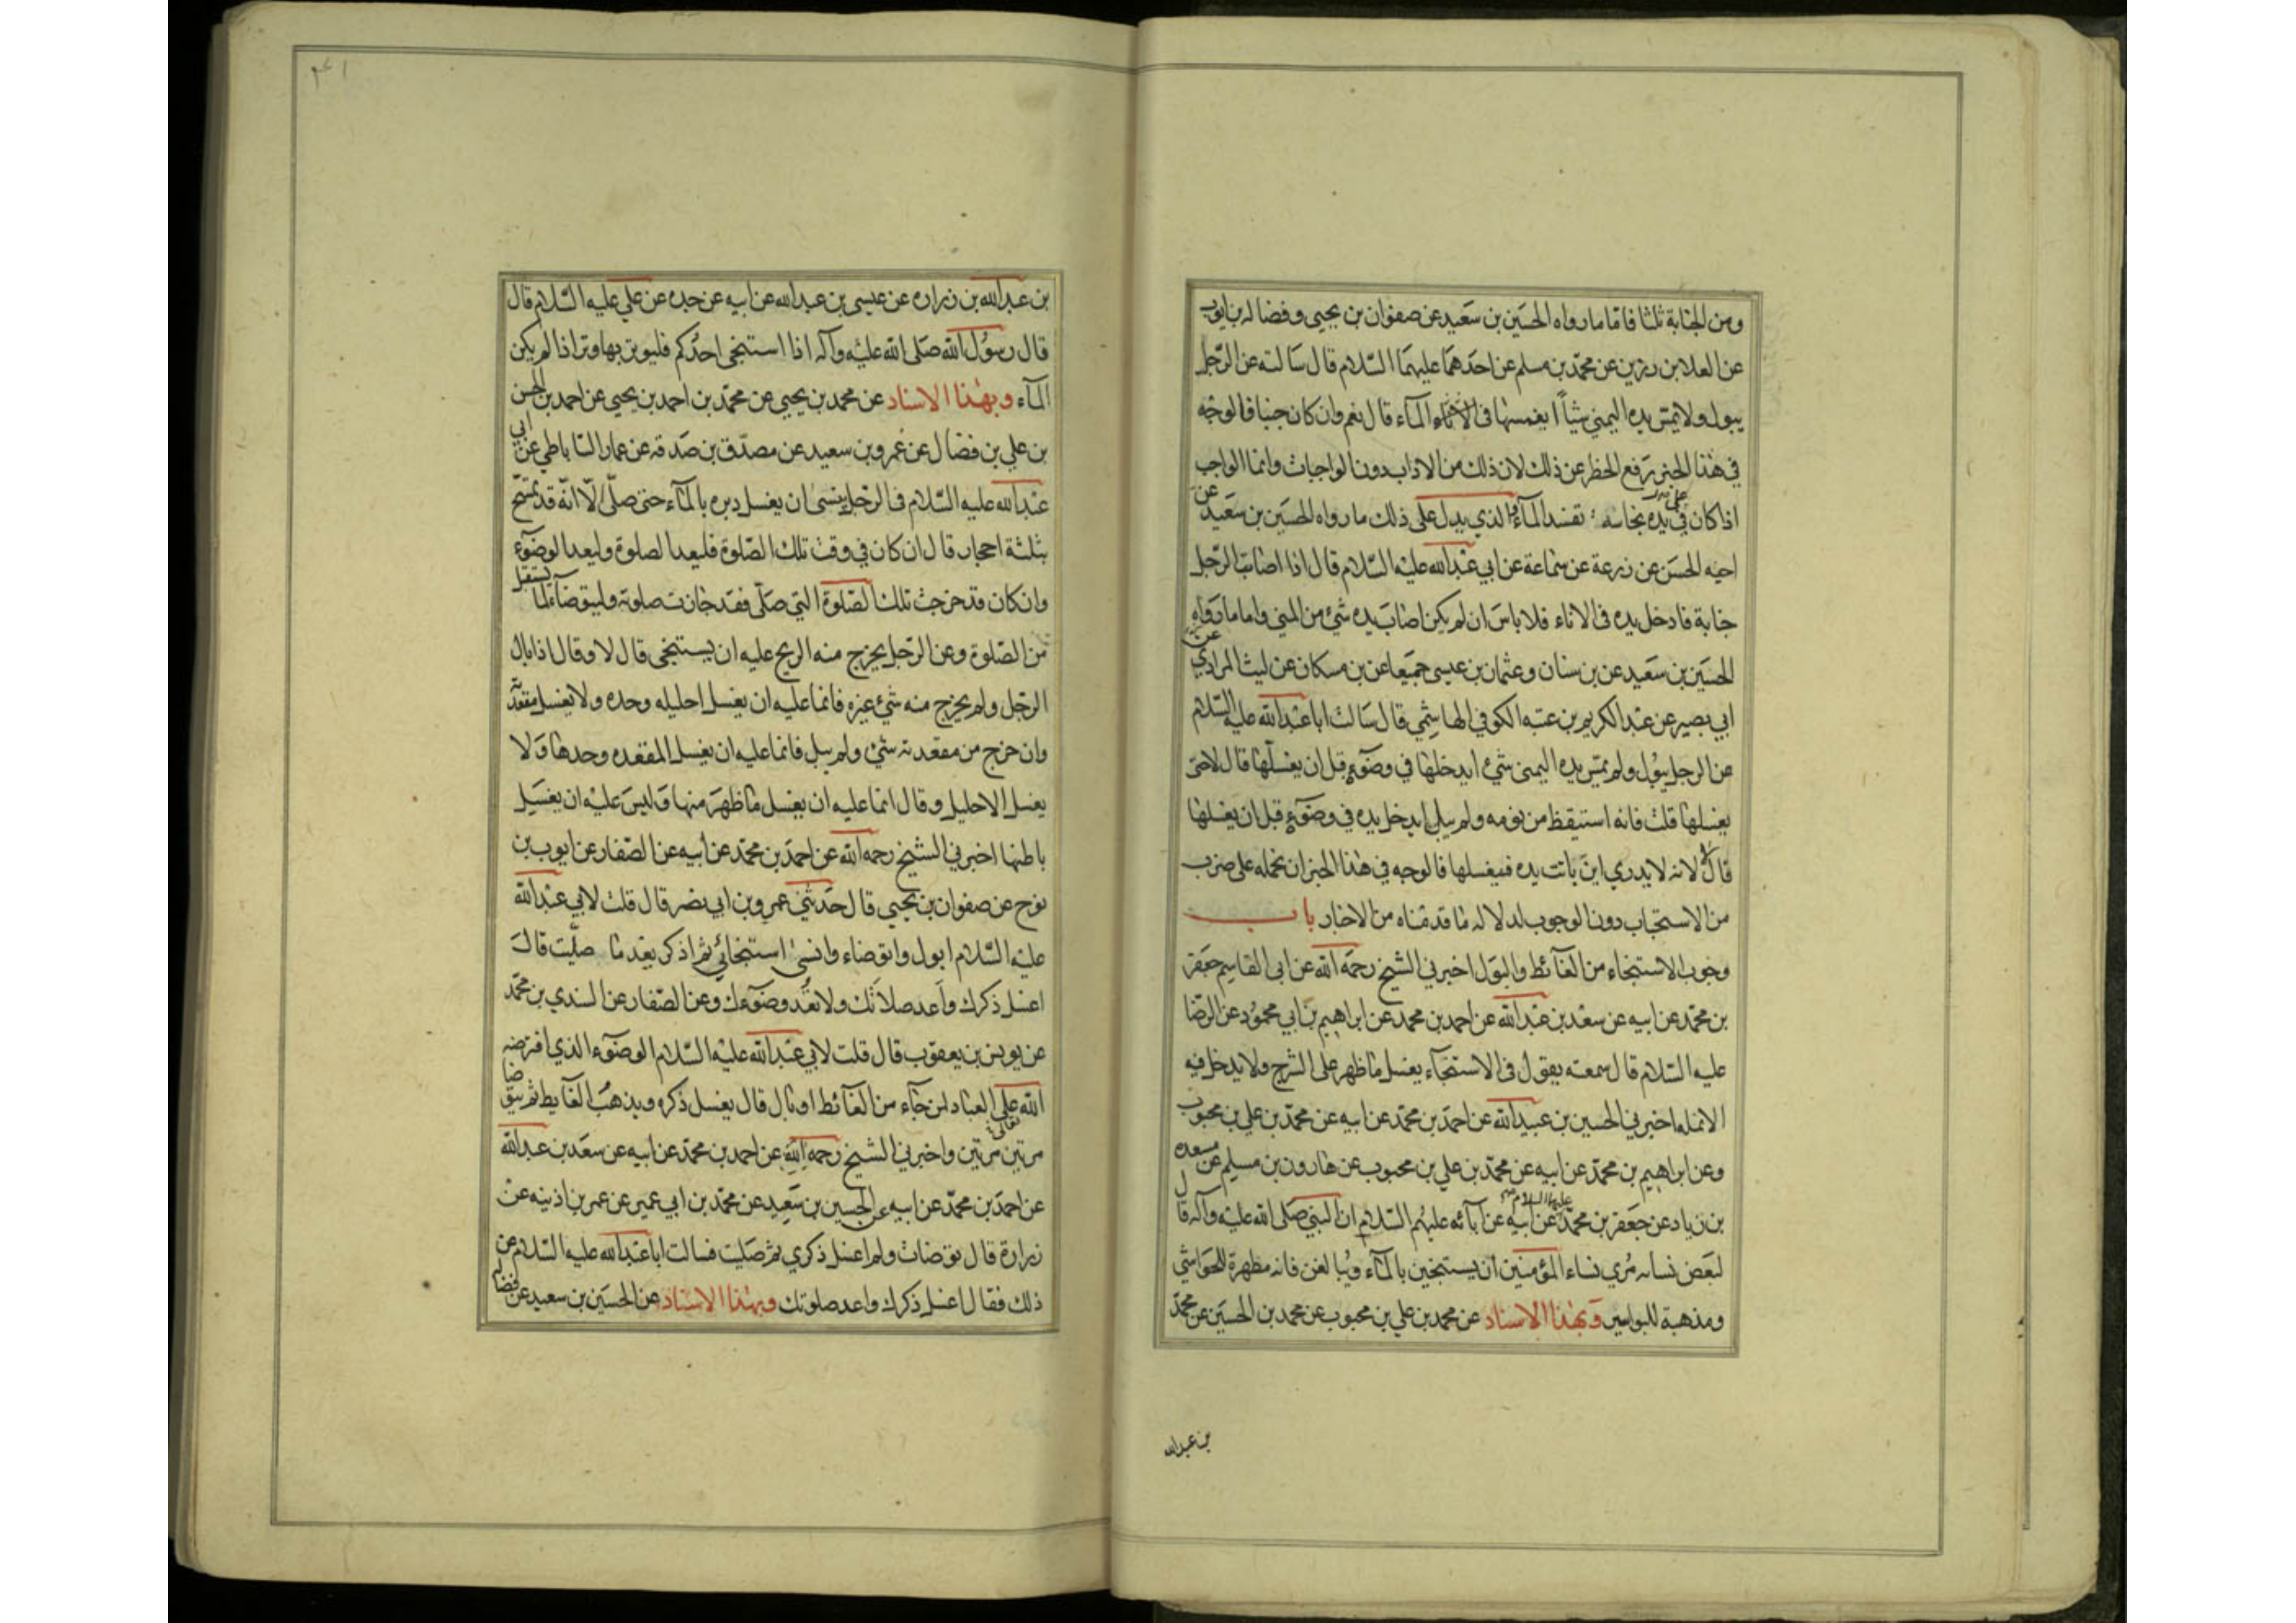 ومن الجنابة ثلثا فاما ما رواه الحسين بن سعيد عن صفوان بن يحيى وفضاله بن ايوب
عن العلا بن رزين عن محمد بن مسلم عن احدهما عليهما السلام قال سالته عن الرجل
يبول ولا يمس يده اليمنى شيأ ايغمسها فى الماء قال نعم وان كان جنبا فالوجه
في هذا الخبر رفع الحظر عن ذلك لان ذلك من الاداب دون الواجبات وانما الواجب
اذا كان على يده نجاسة تفسد المآء والذي يدل على ذلك ما رواه الحسين بن سعيد عن
اخيه الحسن عن زرعة عن سماعة عن ابي عبدالله عليه السلام قال اذا اصابت الرجل
جنابة فادخل يده فى الاناء فلا باس ان لم يكن اصاب يده شئ من المني واما ما رواه
الحسين بن سعيد عن بن سنان وعثمان بن عيسى جميعا عن بن مسكان عن ليث المرادي عن
ابي بصير عن عبد الكريم بن عتبه الكوفي الهاشمي قال سالت ابا عبدالله عليه السلام
عن الرجل يبول ولم تمس يده اليمنى شئ ايدخلها في وضوءه قبل ان يغسلها قال لا حتى
يغسلها قلت فانه استيقظ من نومه ولم يبل ايدخل يده في وضوءه قبل ان يغسلها
قال لا لانه لا يدري اين باتت يده فيغسلها فالوجه في هذا الخبر ان نحمله على ضرب
من الاستحباب دون الوجوب لدلاله ما قدمناه من الاخبار باب
وجوب الاستنجاء من الغآئط والبول اخبرني الشيخ رحمه الله عن ابى القاسم جعفر
بن محمد عن ابيه عن سعد بن عبدالله عن احمد بن محمد عن ابراهيم بن ابي محمود عن الرضا
عليه السلام قال سمعته يقول فى الاستنجآء يغسل ما ظهر على الشرج ولا يدخل فيه
الانمله اخبرني الحسين بن عبيدالله عن احمد بن محمد عن ابيه عن محمد بن علي بن محبوب
وعن ابراهيم بن محمد عن ابيه عن محمد بن علي بن محبوب عن هارون بن مسلم عن مسعده
بن زياد عن جعفر بن محمد عن ابيه عن آبائه عليهم السلام ان النبي صلى الله عليه وآله قال
لبعض نسائه مري نساء المؤمنين ان يستنجين بالمآء ويبالغن فانه مطهرة للحواشي
ومذهبة للبواسير وبهذا الاسناد عن محمد بن علي بن محبوب عن محمد بن الحسين عن محمد
بن عبدالله
بن عبدالله بن زراره عن عيسى بن عبدالله عن ابيه عن جده عن علي عليه السلام قال
قال رسول الله صلى الله عليه وآله اذا استنجى احدكم فليوتر بها وترا اذا لم يكن
المآء وبهذا الاسناد عن محمد بن يحيى عن محمد بن احمد بن يحيى عن احمد بن الحسن
بن علي بن فضال عن عمرو بن سعيد عن مصدق بن صدقه عن عمار الساباطي عن ابي
عبدالله عليه السلام فى الرجل ينسى ان يغسل دبره بالمآء حتى صلى الا انه قد تمسح
بثلثة احجار قال ان كان في وقت تلك الصلوة فليعد الصلوة وليعد الوضوء
وان كان قد خرجت تلك الصلوة التي صلى فقد جازت صلوته وليتوضأ لما يستقبل
من الصلوة وعن الرجل يخرج منه الريح عليه ان يستنجى قال لا وقال اذا بال
الرجل ولم يخرج منه شئ غيره فانما عليه ان يغسل احليله وحده ولا يغسل مقعدته
وان خرج من مقعدته شئ ولم يبل فانما عليه ان يغسل المقعده وحدها ولا
يغسل الاحليل وقال انما عليه ان يغسل ما ظهر منها وليس عليه ان يغسل
باطنها اخبرني الشيخ رحمه الله عن احمد بن محمد عن ابيه عن الصفار عن ايوب بن
نوح عن صفوان بن يحيى قال حدثني عمرو بن ابي نصر قال قلت لابي عبدالله
عليه السلام ابول واتوضاء وانسى استنجائي ثم اذكر بعد ما صليت قال
اغسل ذكرك واعد صلاتك ولا تعد وضوءك وعن الصفار عن السندي بن محمد
عن يونس بن يعقوب قال قلت لابي عبدالله عليه السلام الوضوء الذي افترضه
الله على العباد لمن جآء من الغآئط او بال قال يغسل ذكره ويذهب الغايط ثم يتوضا
مرتين مرتين واخبرني الشيخ رحمه الله تعالى عن احمد بن محمد عن ابيه عن سعد بن عبدالله
عن احمد بن محمد عن ابيه عن الحسين بن سعيد عن محمد بن ابي عمير عن عمر بن اذينه عن
زرارة قال توضات ولم اغسل ذكري ثم صليت فسالت ابا عبدالله عليه السلام عن
ذلك فقال اغسل ذكرك واعد صلوتك وبهذا الاسناد عن الحسين بن سعيد عن فضاله